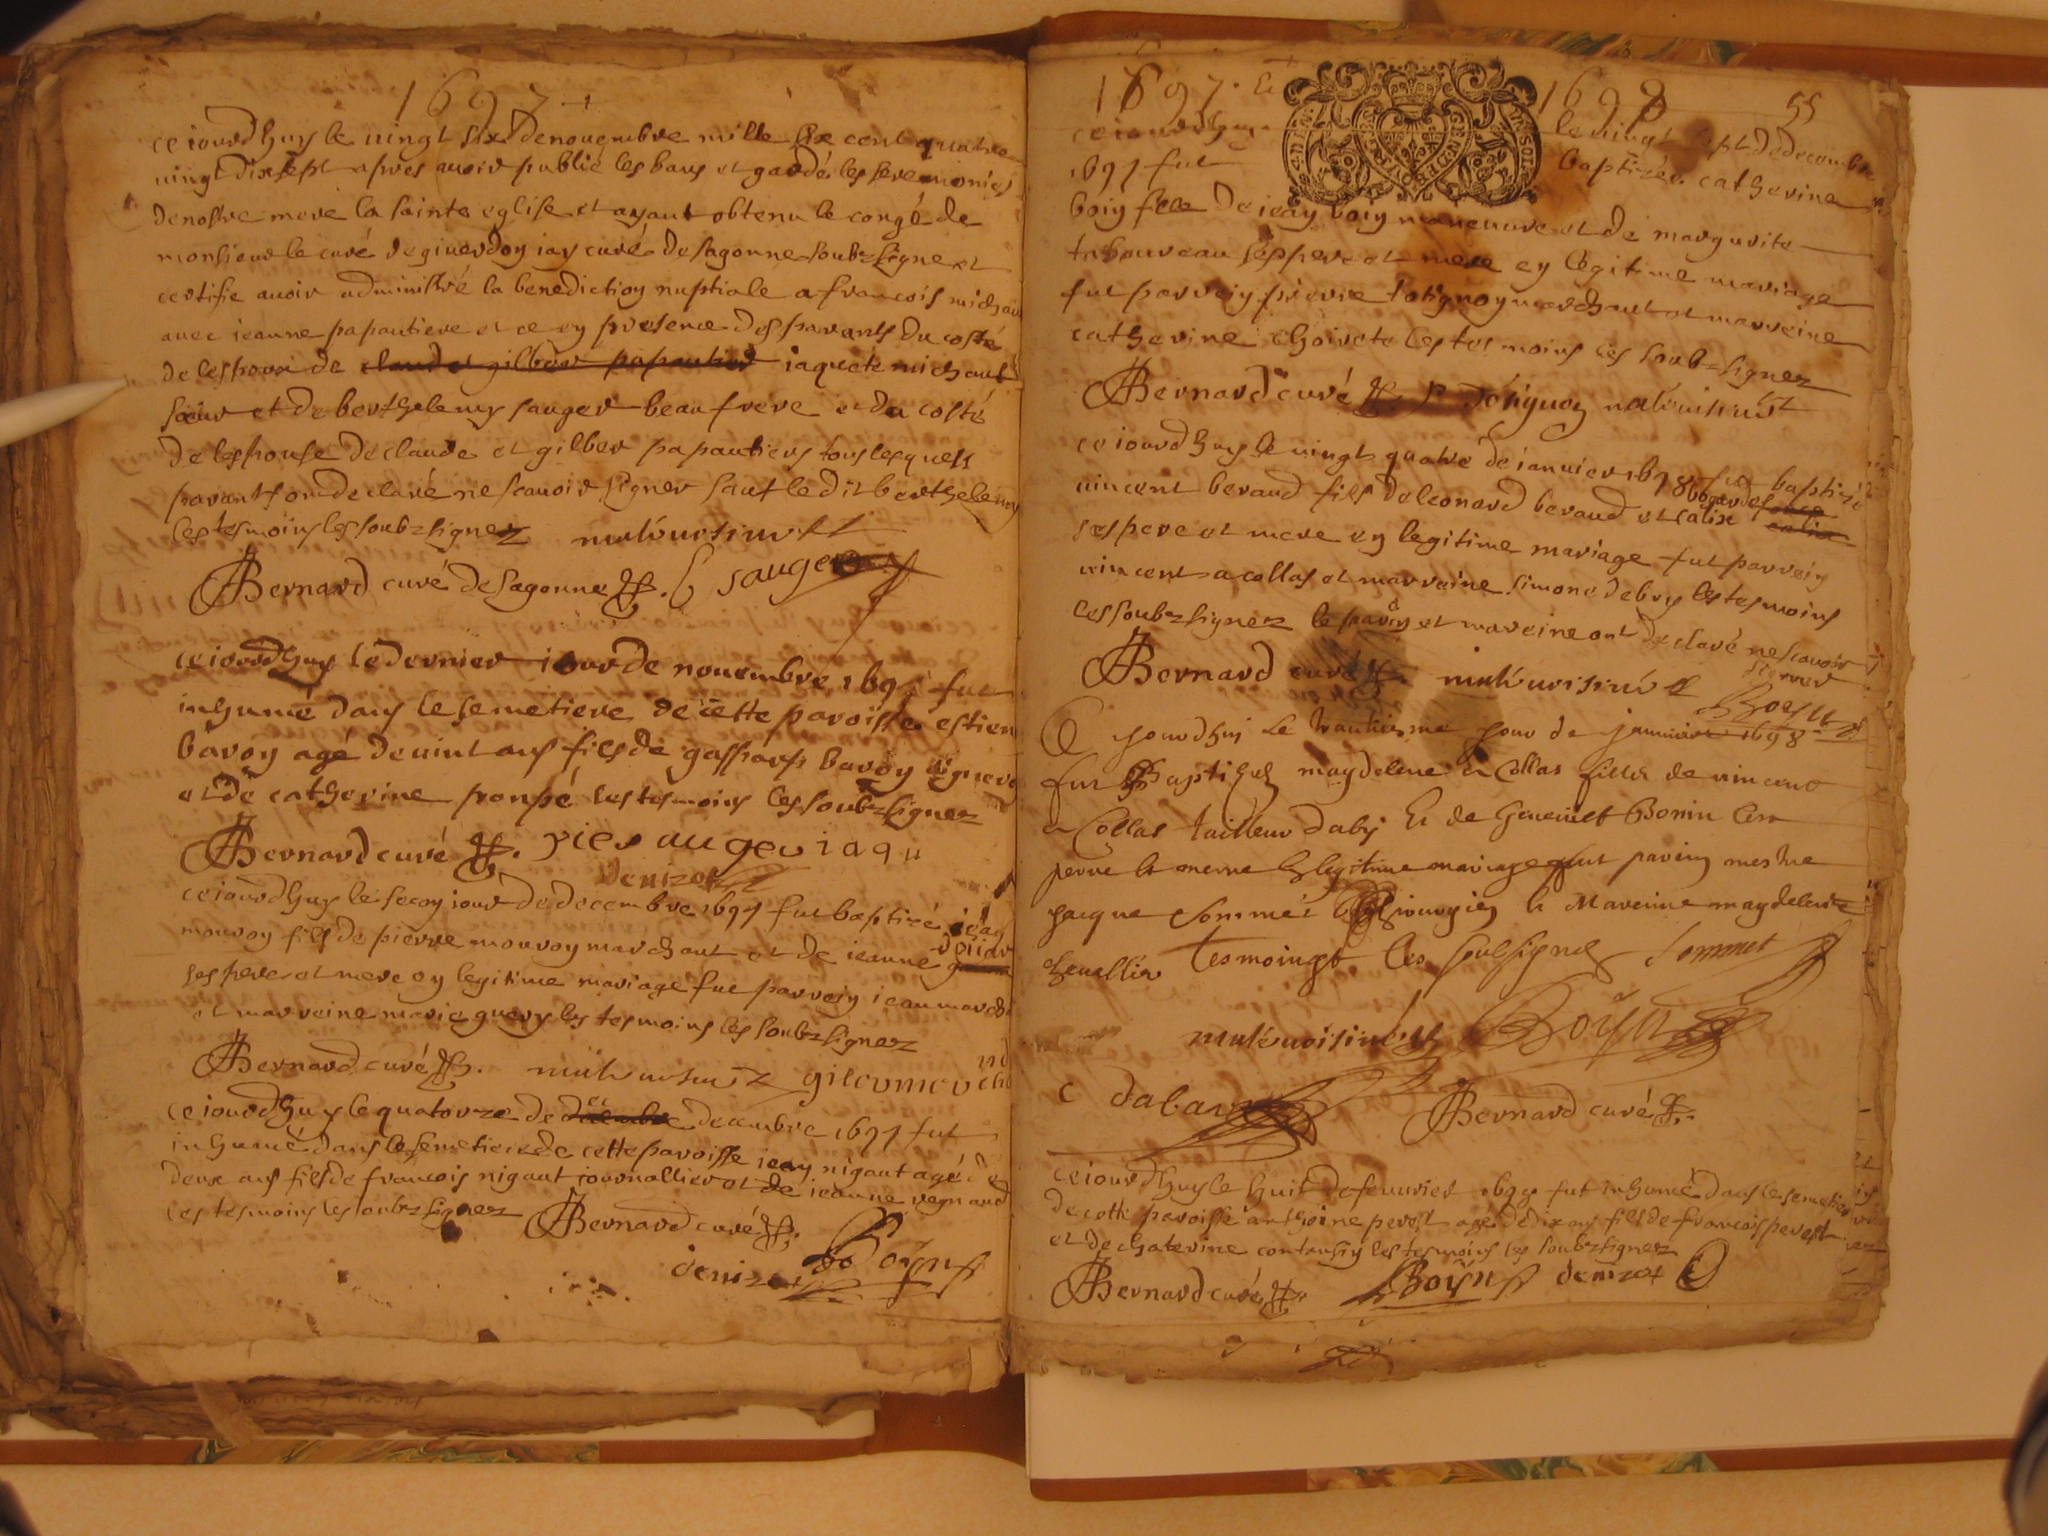 1697
ce iourdhuy le vingt six de nouembre mille six cent quatre
vingt dix sept apres auoir publié les bans et gardé les seremonies
de nostre mere la sainte eglise et ayant obtenu le congé de
monsieur le curé de giuerdon iay curé de sagonne soubz signe et
certifie auoir administré la benediction nuptiale a francois michau
auec ieanne papautiere et ce en presence des parants du costé
de lespoux de claude et gilber papautier iaquete michaut
soeur et de berthelemy sauger beau frere et du costé
de lespouse de claude et gilber papautiers tous lesquels
parants on declaré ne scauoir signer sauf le dit berthelemy
les tesmoins les soubz signez
Bernard curé de sagonne B sauger
ce iourdhuy le dernier iour de nouembre 1697 fut
inhumé dans le semetiere de cette paroisse estien
bavoy agé de vint ans fils de gaspars bavoy
et de catherine ponpé les tesmoins les soubz signez
Bernard curé
denizot
ce iourdhuy le secon iour de decembre 1697 fut baptizé iean
mouroy fils de pierre mouroy marchant et de ieanne
ses pere et mere en legitime mariage fut parrein iean march
et marreine marie guery les tesmoins les soubz signez
Bernard curé
ce iourdhuy le quatorze de decembre decembre 1697 fut
inhumé dans le semetiere de cette paroisse iean nigaut agé de
deux ans fils de francois nigaut iournallier et de ieanne regnaud
les tesmoins les soubz signez Bernard curé
denizot Boyn
1697 Et 1698 55
ce iourdhuy le vingt sept de decembre
1697 fut baptizée catherine
boin fille de iean boin maneuvre et de margurite
taboureau ses pere et mere en legitime mariage
fut parrein pierre totignon marchant et marreine
catherine choirete les tesmoins les soubz signez
Bernard curé P totignon
ce iourdhuy le vingt quatre de ianuier 1698 fut baptizé
vincent beraud fils de leonard beraud et
ses pere et mere en legitime mariage fut parrein
vincent a collas et marreine simone debry les tesmoins
les soubz signez le parein et mareine ont declaré ne scauoir
signer
Bernard curé Boyn
Ce jourdhuy le trantiesme jour de januier 1698
fut Baptisez magdelene a Collas fille de vincent
a Collas tailleur daby Et de Geneuieve Bonin
perre et merre En legitime mariage fut parin mestre
jacque Sommet Chirurgien et Mareinne magdelene
cheuallier Tesmoingt les soubsignes Sommet
Boyn
c dabar
Bernard curé
ce iourdhuy le huit de feuurier 1698 fut inhumé dans le semetiere
de cette paroisse anthoine perot agé de dix ans fils de francois perot
et de chaterine contansin les tesmoins les soubz signez
Bernard curé Boyn denizot